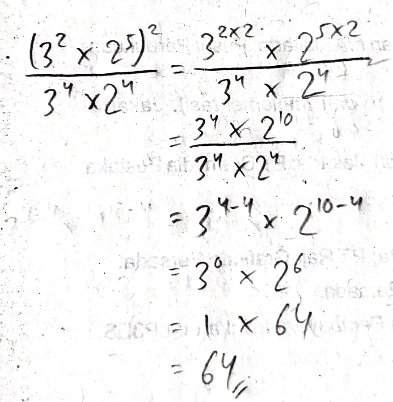 (3² × 2⁵)² / 3⁴ × 2⁴ = 3²ˣ² × 2⁵ˣ² / 3⁴ × 2⁴
= 3⁴ × 2¹⁰ / 3⁴ × 2⁴
= 3⁴⁻⁴ × 2¹⁰⁻⁴
= 3⁰ × 2⁶
= 1 × 64
= 64